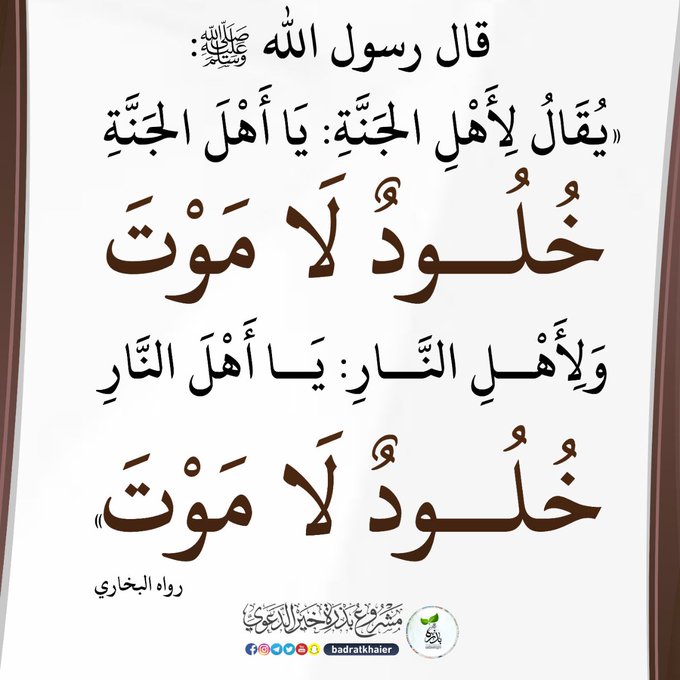 قال رسول الله ﷺ:
«يُقَالُ لِأَهْلِ الجَنَّةِ: يَا أَهْلَ الجَنَّةِ
خُلُــودٌ لَا مَوْتَ
وَلِأَهْــلِ النَّــارِ: يَــا أَهْلَ النَّارِ
خُلُــودٌ لَا مَوْتَ»
رواه البخاري
مَشْرُوعُ بَذْرَةُ خَيْرٍ الدَّعَوِي
بذرة
badratkhaier